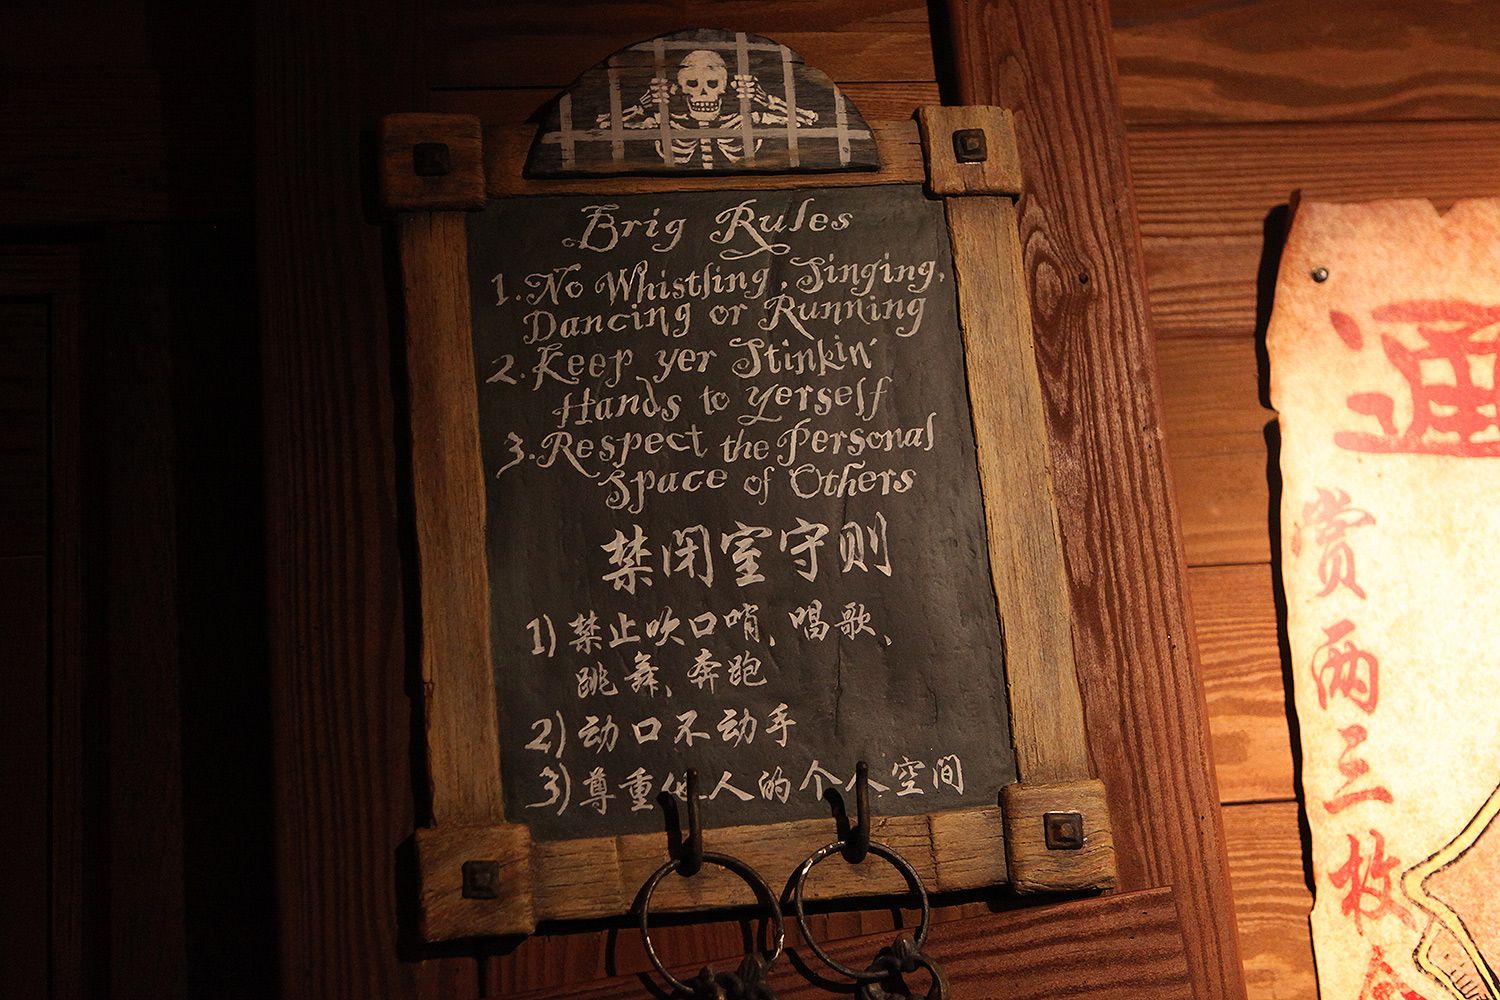 Brig Rules
1. No Whistling, Singing,
Dancing or Running
2. Keep yer Stinkin'
Hands to yerself
3. Respect the Personal
Space of Others
禁闭室守则
1) 禁止吹口哨、唱歌、
跳舞、奔跑
2) 动口不动手
3) 尊重他人的个人空间
通
赏
两
三
枚
金